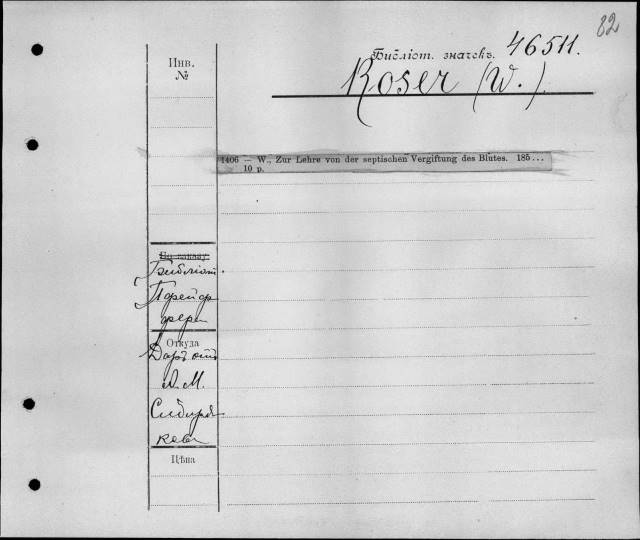 82
Библіот. значекъ. 46511.
Инв.
№
Roser (W.).
1406 — W., Zur Lehre von der septischen Vergiftung des Blutes. 185...
10 p.
По заказу
Библіот.
Пфейф
фера
Откуда
Даръ отъ
А. М.
Сибиря
кова
Цѣна